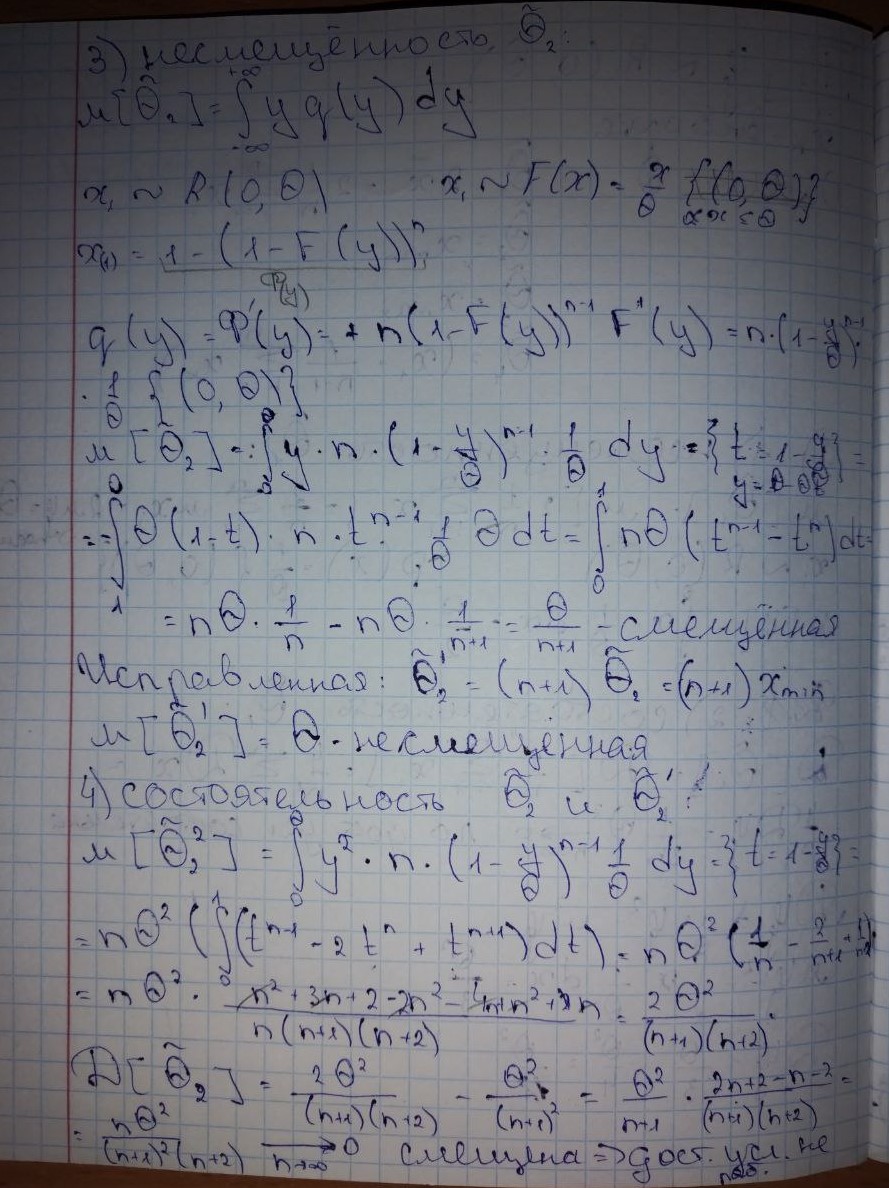 3) несмещённость θ̃₂:
м[θ̃₂] = ∫_{-∞}^{+∞} y q(y) dy
x₁ ~ R(0, θ) x₁ ~ F(x) = x/θ {(0, θ)}
x₍₁₎ = 1 - (1 - F(y))ⁿ
Φ(y)
q(y) = Φ'(y) = + n(1 - F(y))ⁿ⁻¹ F'(y) = n·(1 - y/θ)ⁿ⁻¹·
· 1/θ {(0, θ)}
м[θ̃₂] = ∫₀^θ y · n · (1 - y/θ)ⁿ⁻¹ · 1/θ dy = {t = 1 - y/θ} =
= -∫₁⁰ θ(1-t) · n · tⁿ⁻¹ 1/θ θ dt = ∫₀¹ nθ (tⁿ⁻¹ - tⁿ) dt =
= nθ · 1/n - nθ · 1/(n+1) = θ/(n+1) - смещённая
Исправленная: θ̃₂' = (n+1) θ̃₂ = (n+1) xmin
м[θ̃₂'] = θ - несмещенная
4) состоятельность θ̃₂ и θ̃₂':
м[θ̃₂²] = ∫₀^θ y² · n · (1 - y/θ)ⁿ⁻¹ 1/θ dy = {t = 1 - y/θ} =
= nθ² (∫₀¹ (tⁿ⁻¹ - 2tⁿ + tⁿ⁺¹) dt) = nθ² (1/n - 2/(n+1) + 1/(n+2)) =
= nθ² · (n² + 3n + 2 - 2n² - 4n + n² + n)/(n(n+1)(n+2)) = 2θ²/((n+1)(n+2))
D[θ̃₂] = 2θ²/((n+1)(n+2)) - θ²/(n+1)² = θ²/(n+1) · (2n+2-n-2)/((n+1)(n+2)) =
= nθ²/((n+1)²(n+2)) →_{n→∞} 0 смещена => дост. усл. не
раб.